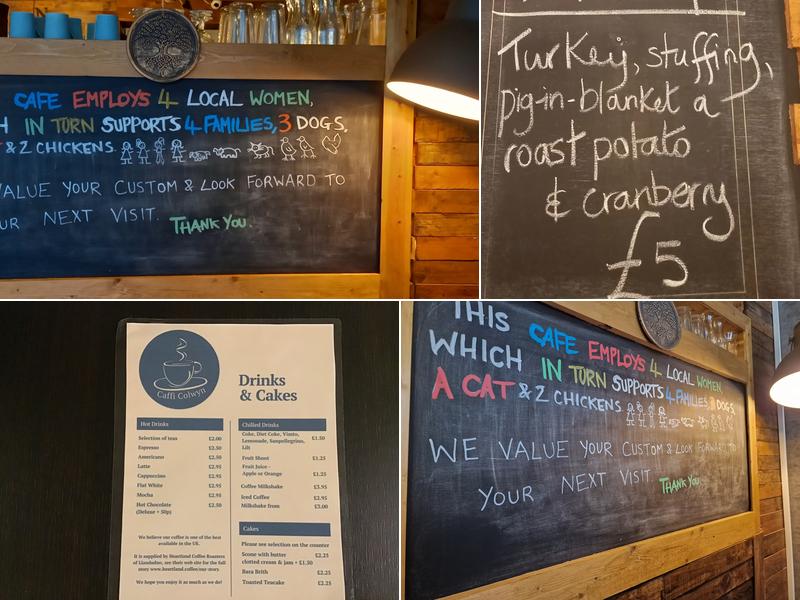 CAFE EMPLOYS 4 LOCAL WOMEN,
H IN TURN SUPPORTS 4 FAMILIES, 3 DOGS,
& 2 CHICKENS
VALUE YOUR CUSTOM & LOOK FORWARD TO
UR NEXT VISIT. THANK YOU.
Turkey, stuffing,
pig-in-blanket a
roast potato
& cranberry
£5
Caffi Colwyn
Drinks
& Cakes
Hot Drinks
Selection of teas £2.00
Espresso £2.50
Americano £2.50
Latte £2.95
Cappuccino £2.95
Flat White £2.95
Mocha £2.95
Hot Chocolate £2.50
(Deluxe + 50p)
We believe our coffee is one of the best
available in the UK.
It is supplied by Heartland Coffee Roasters
of Llandudno, see their web site for the full
story www.heartland.coffee/our-story.
We hope you enjoy it as much as we do!
Chilled Drinks
Coke, Diet Coke, Vimto,
Lemonade, Sanpellegrino, £1.50
Lilt
Fruit Shoot £1.25
Fruit Juice -
Apple or Orange £1.25
Coffee Milkshake £3.95
Iced Coffee £2.95
Milkshake from £3.00
Cakes
Please see selection on the counter
Scone with butter £2.25
clotted cream & jam + £1.50
Bara Brith £2.25
Toasted Teacake £2.25
THIS CAFE EMPLOYS 4 LOCAL WOMEN,
WHICH IN TURN SUPPORTS 4 FAMILIES, 3 DOGS,
A CAT & 2 CHICKENS
WE VALUE YOUR CUSTOM & LOOK FORWARD TO
YOUR NEXT VISIT. THANK YOU.